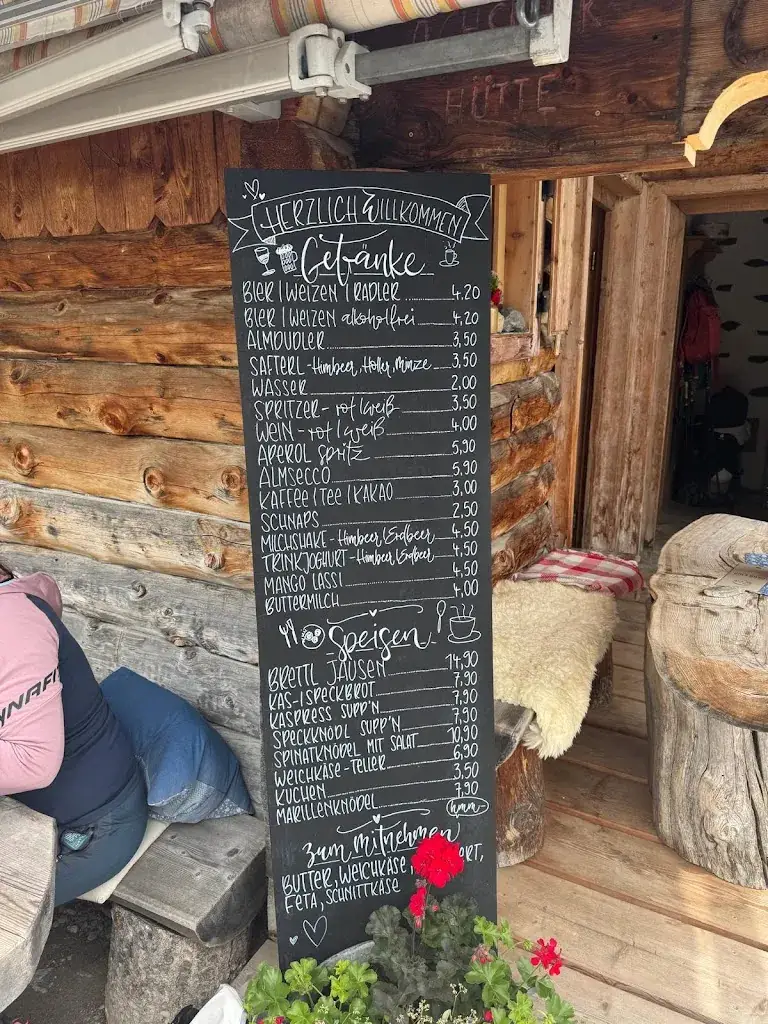 HÜTTE
HERZLICH WILLKOMMEN
Getränke
BIER | WEIZEN | RADLER 4.20
BIER | WEIZEN alkoholfrei 4,20
ALMDUDLER 3,50
SAFTERL - Himbeer, Holler, Minze 3,50
WASSER 2,00
SPRITZER - rot | weiß 3,50
WEIN - rot | weiß 4,00
APEROL Spritz 5,90
ALMSECCO 5,90
KAFFEE | TEE | KAKAO 3,00
SCHNAPS 2,50
MILCHSHAKE - Himbeer | Erdbeer 4,50
TRINKJOGHURT - Himbeer | Erdbeer 4,50
MANGO LASSI 4,50
BUTTERMILCH 4,00
Speisen
BRETTL JAUSEN 14,90
KAS- | SPECKBROT 7,90
KASPRESS SUPP'N 7,90
SPECKKNÖDL SUPP'N 7,90
SPINATKNÖDEL MIT SALAT 10,90
WEICHKÄSE-TELLER 6,90
KUCHEN 3,50
MARILLENKNÖDEL 7,90
hmm~
zum mitnehmen
BUTTER, WEICHKÄSE,
FETA, SCHNITTKÄSE
YNAFI